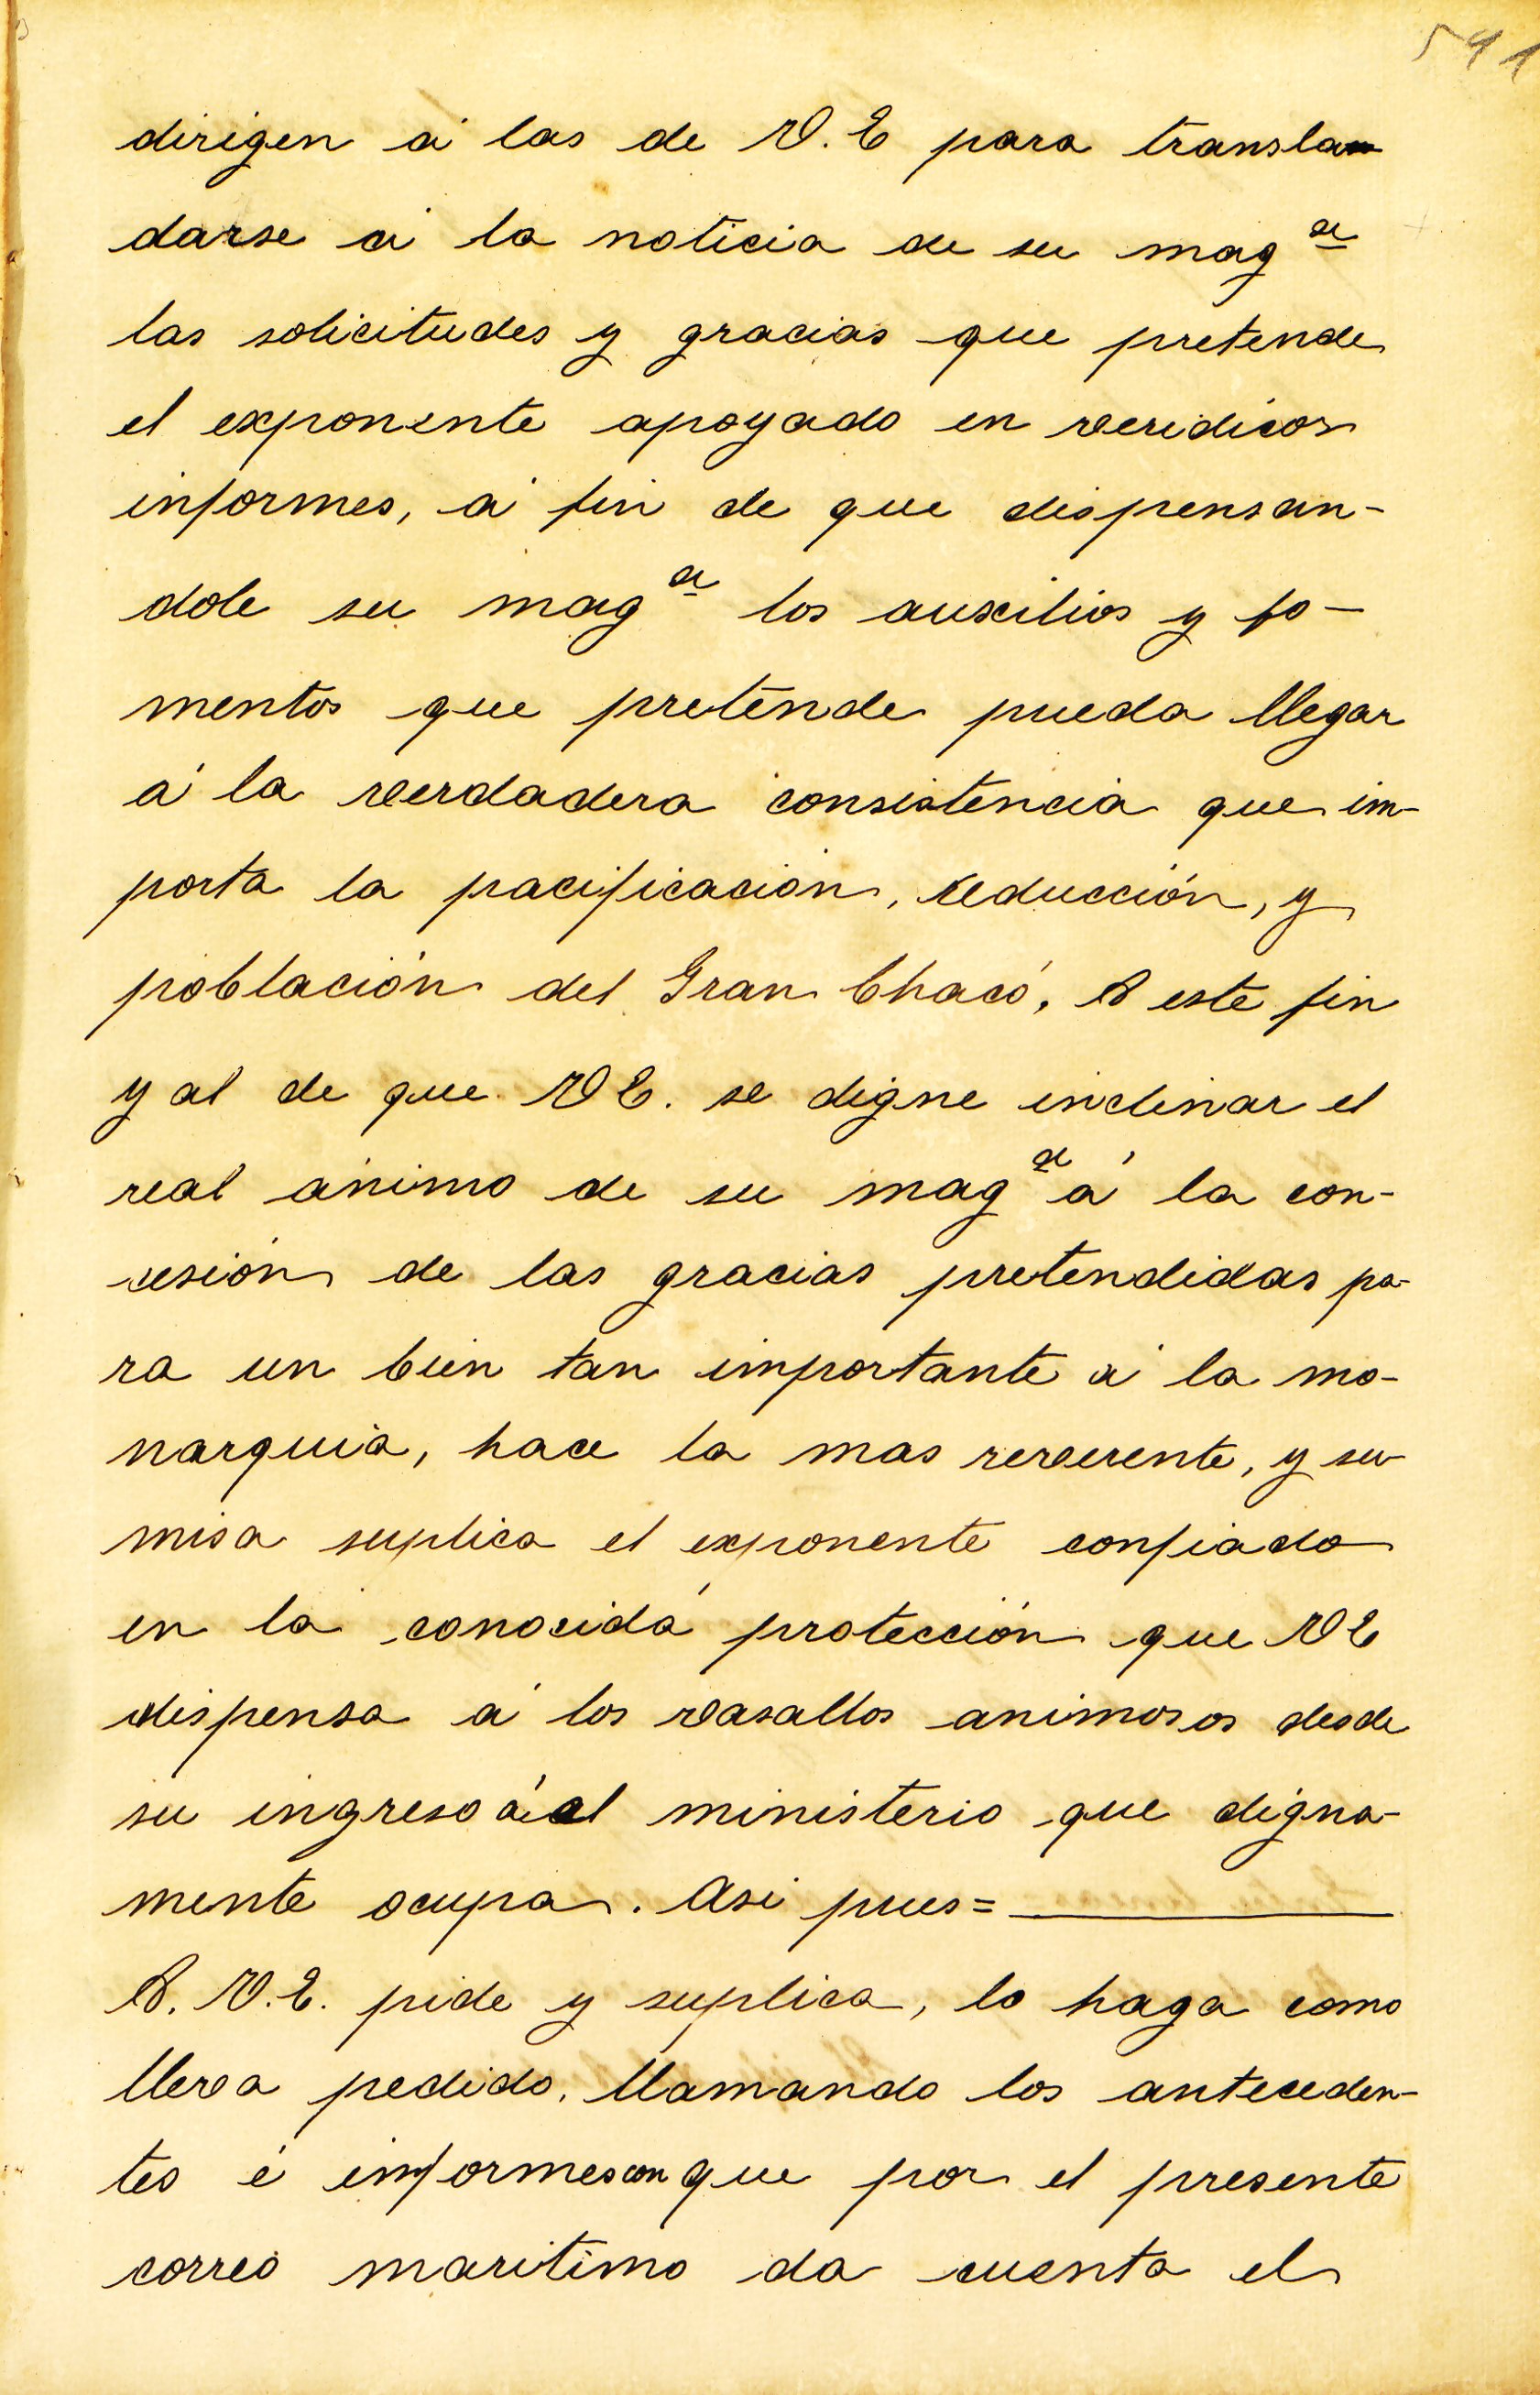 591
dirigen á las de V. E para transla-
darse á la noticia de su mag^d
las solicitudes y gracias que pretende
el exponente apoyado en veridicos
informes, á fin de que dispensan-
dole su mag^d los auxilios y fo-
mentos que pretende pueda llegar
á la verdadera consistencia que im-
porta la pacificación, reducción, y
población del Gran Chacó, A este fin
y al de que VE. se digne inclinar el
real ánimo de su mag^d á la con-
cesión de las gracias pretendidas pa-
ra un bien tan importante á la mo-
narquia, hace la mas reverente, y su-
misa suplica el exponente confiado
en la conocida protección que VE
dispensa á los vasallos animosos desde
su ingreso á el ministerio que digna-
mente ocupa. Asi pues=
A. V.E. pide y suplica, lo haga como
lleva pedido, llamando los anteceden-
tes é informes con que por el presente
correo maritimo da cuenta el